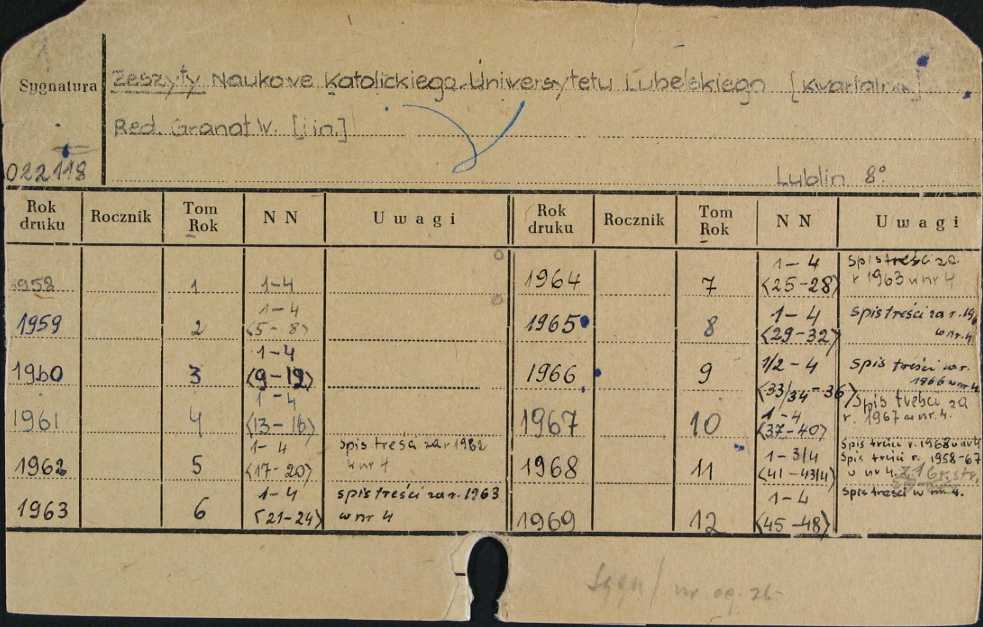 Sygnatura Zeszyty Naukowe Katolickiego Uniwersytetu Lubelskiego
Red. Granat W. [i in.]
022118 Lublin 8°
Rok druku Rocznik Tom Rok NN Uwagi Rok druku Rocznik Tom Rok NN Uwagi
1958 1 1-4
1959 2 1-4 <5-8>
1960 3 1-4 <9-12>
1961 4 1-4 <13-16>
1962 5 1-4 <17-20> spis treści za r. 1962 w nr 4
1963 6 1-4 <21-24> spis treści za r. 1963 w nr 4
1964 7 1-4 <25-28> spis treści za r 1963 w nr 4
1965 8 1-4 <29-32> spis treści za r. w nr. 4
1966 9 1/2-4 <33/34-36> spis treści w r. 1966 w nr 4
1967 10 1-4 <37-40> spis treści za r. 1967 w nr 4.
1968 11 1-3/4 <41-43/4> spis treści r. 1968 w nr 4 spis treści r. 1958-67 w nr 4.
1969 12 1-4 <45-48> spis treści w nr 4.